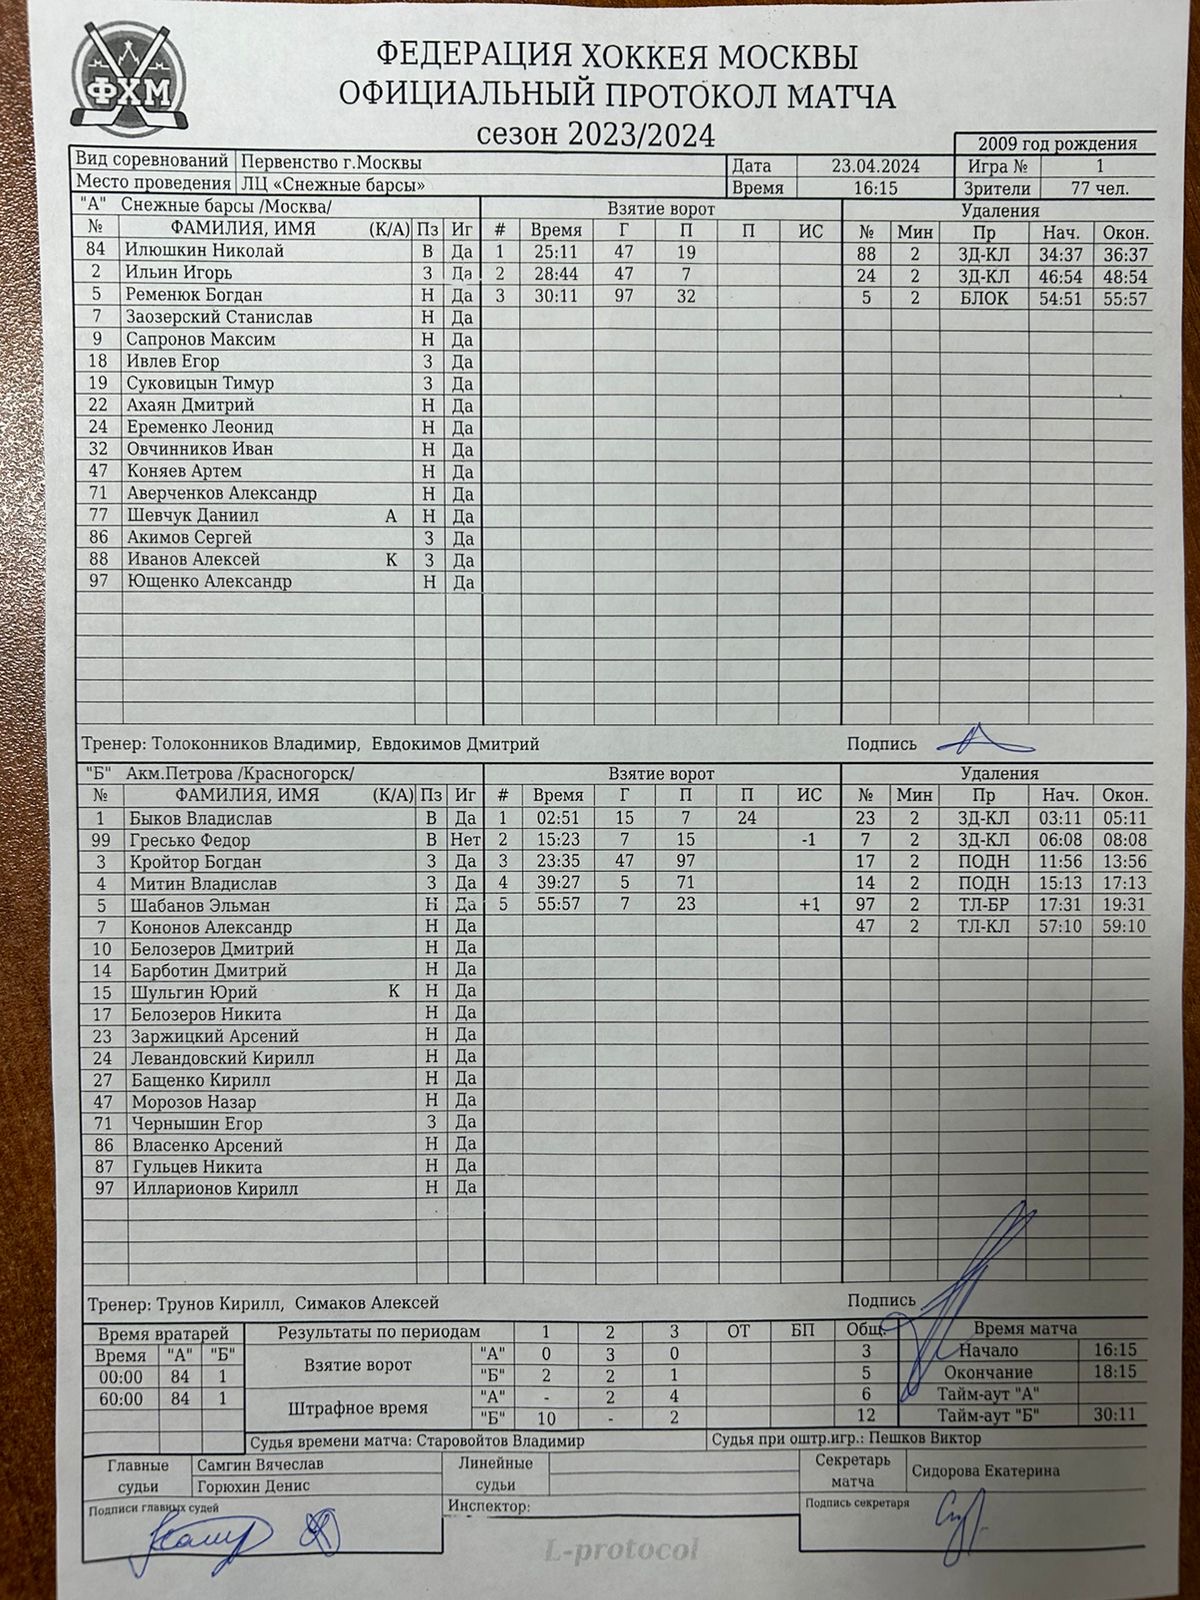 ФХМ
ФЕДЕРАЦИЯ ХОККЕЯ МОСКВЫ
ОФИЦИАЛЬНЫЙ ПРОТОКОЛ МАТЧА
сезон 2023/2024
2009 год рождения
Вид соревнований Первенство г.Москвы Дата 23.04.2024 Игра № 1
Место проведения ЛЦ «Снежные барсы» Время 16:15 Зрители 77 чел.
"А" Снежные барсы /Москва/ Взятие ворот Удаления
№ ФАМИЛИЯ, ИМЯ (К/А) Пз Иг # Время Г П П ИС № Мин Пр Нач. Окон.
84 Илюшкин Николай В Да 1 25:11 47 19 88 2 ЗД-КЛ 34:37 36:37
2 Ильин Игорь З Да 2 28:44 47 7 24 2 ЗД-КЛ 46:54 48:54
5 Ременюк Богдан Н Да 3 30:11 97 32 5 2 БЛОК 54:51 55:57
7 Заозерский Станислав Н Да
9 Сапронов Максим Н Да
18 Ивлев Егор З Да
19 Суковицын Тимур З Да
22 Ахаян Дмитрий Н Да
24 Еременко Леонид Н Да
32 Овчинников Иван Н Да
47 Коняев Артем Н Да
71 Аверченков Александр Н Да
77 Шевчук Даниил А Н Да
86 Акимов Сергей З Да
88 Иванов Алексей К З Да
97 Ющенко Александр Н Да
Тренер: Толоконников Владимир, Евдокимов Дмитрий Подпись
"Б" Акм.Петрова /Красногорск/ Взятие ворот Удаления
№ ФАМИЛИЯ, ИМЯ (К/А) Пз Иг # Время Г П П ИС № Мин Пр Нач. Окон.
1 Быков Владислав В Да 1 02:51 15 7 24 23 2 ЗД-КЛ 03:11 05:11
99 Гресько Федор В Нет 2 15:23 7 15 -1 7 2 ЗД-КЛ 06:08 08:08
3 Кройтор Богдан З Да 3 23:35 47 97 17 2 ПОДН 11:56 13:56
4 Митин Владислав З Да 4 39:27 5 71 14 2 ПОДН 15:13 17:13
5 Шабанов Эльман Н Да 5 55:57 7 23 +1 97 2 ТЛ-БР 17:31 19:31
7 Кононов Александр Н Да 47 2 ТЛ-КЛ 57:10 59:10
10 Белозеров Дмитрий Н Да
14 Барботин Дмитрий Н Да
15 Шульгин Юрий К Н Да
17 Белозеров Никита Н Да
23 Заржицкий Арсений Н Да
24 Левандовский Кирилл Н Да
27 Бащенко Кирилл Н Да
47 Морозов Назар Н Да
71 Чернышин Егор З Да
86 Власенко Арсений Н Да
87 Гульцев Никита Н Да
97 Илларионов Кирилл Н Да
Тренер: Трунов Кирилл, Симаков Алексей Подпись
Время вратарей Результаты по периодам 1 2 3 ОТ БП Общ. Время матча
Время "А" "Б" Взятие ворот "А" 0 3 0 3 Начало 16:15
00:00 84 1 "Б" 2 2 1 5 Окончание 18:15
60:00 84 1 Штрафное время "А" - 2 4 6 Тайм-аут "А"
"Б" 10 - 2 12 Тайм-аут "Б" 30:11
Судья времени матча: Старовойтов Владимир Судья при оштр.игр.: Пешков Виктор
Главные судьи Самгин Вячеслав Линейные судьи Секретарь матча Сидорова Екатерина
Горюхин Денис
Подписи главных судей Инспектор: Подпись секретаря
L-protocol